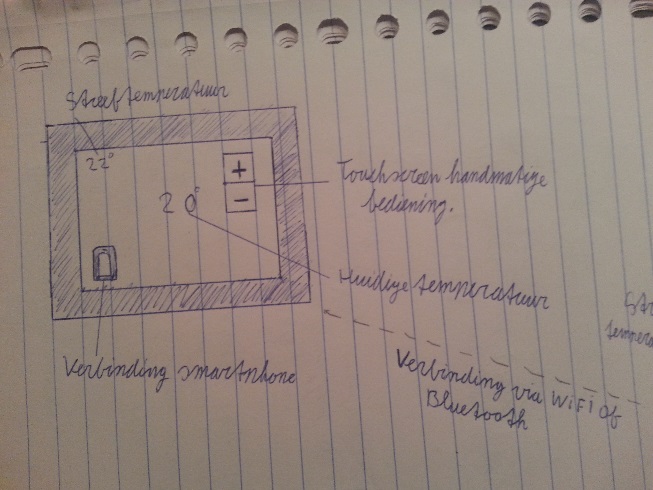 Streeftemperatuur
22°
+
20°
-
Touchscreen handmatige
bediening.
Huidige temperatuur
Verbinding smartphone
Verbinding via WiFi of
Bluetooth